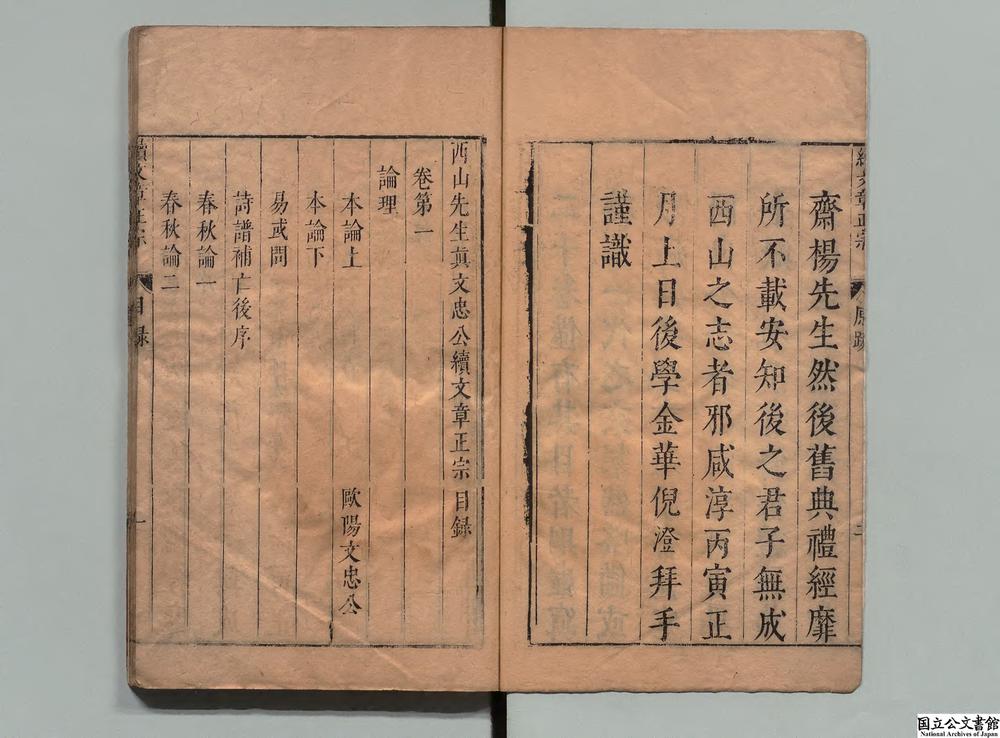 齋楊先生然後舊典禮經靡
所不載安知後之君子無成
西山之志者邪咸淳丙寅正
月上日後學金華倪澄拜手
謹識
二
西山先生真文忠公續文章正宗目録
卷第一
論理
本論上
歐陽文忠公
本論下
易或問
詩譜補亡後序
春秋論一
春秋論二
續文章正宗
目録
一
国立公文書館
National Archives of Japan